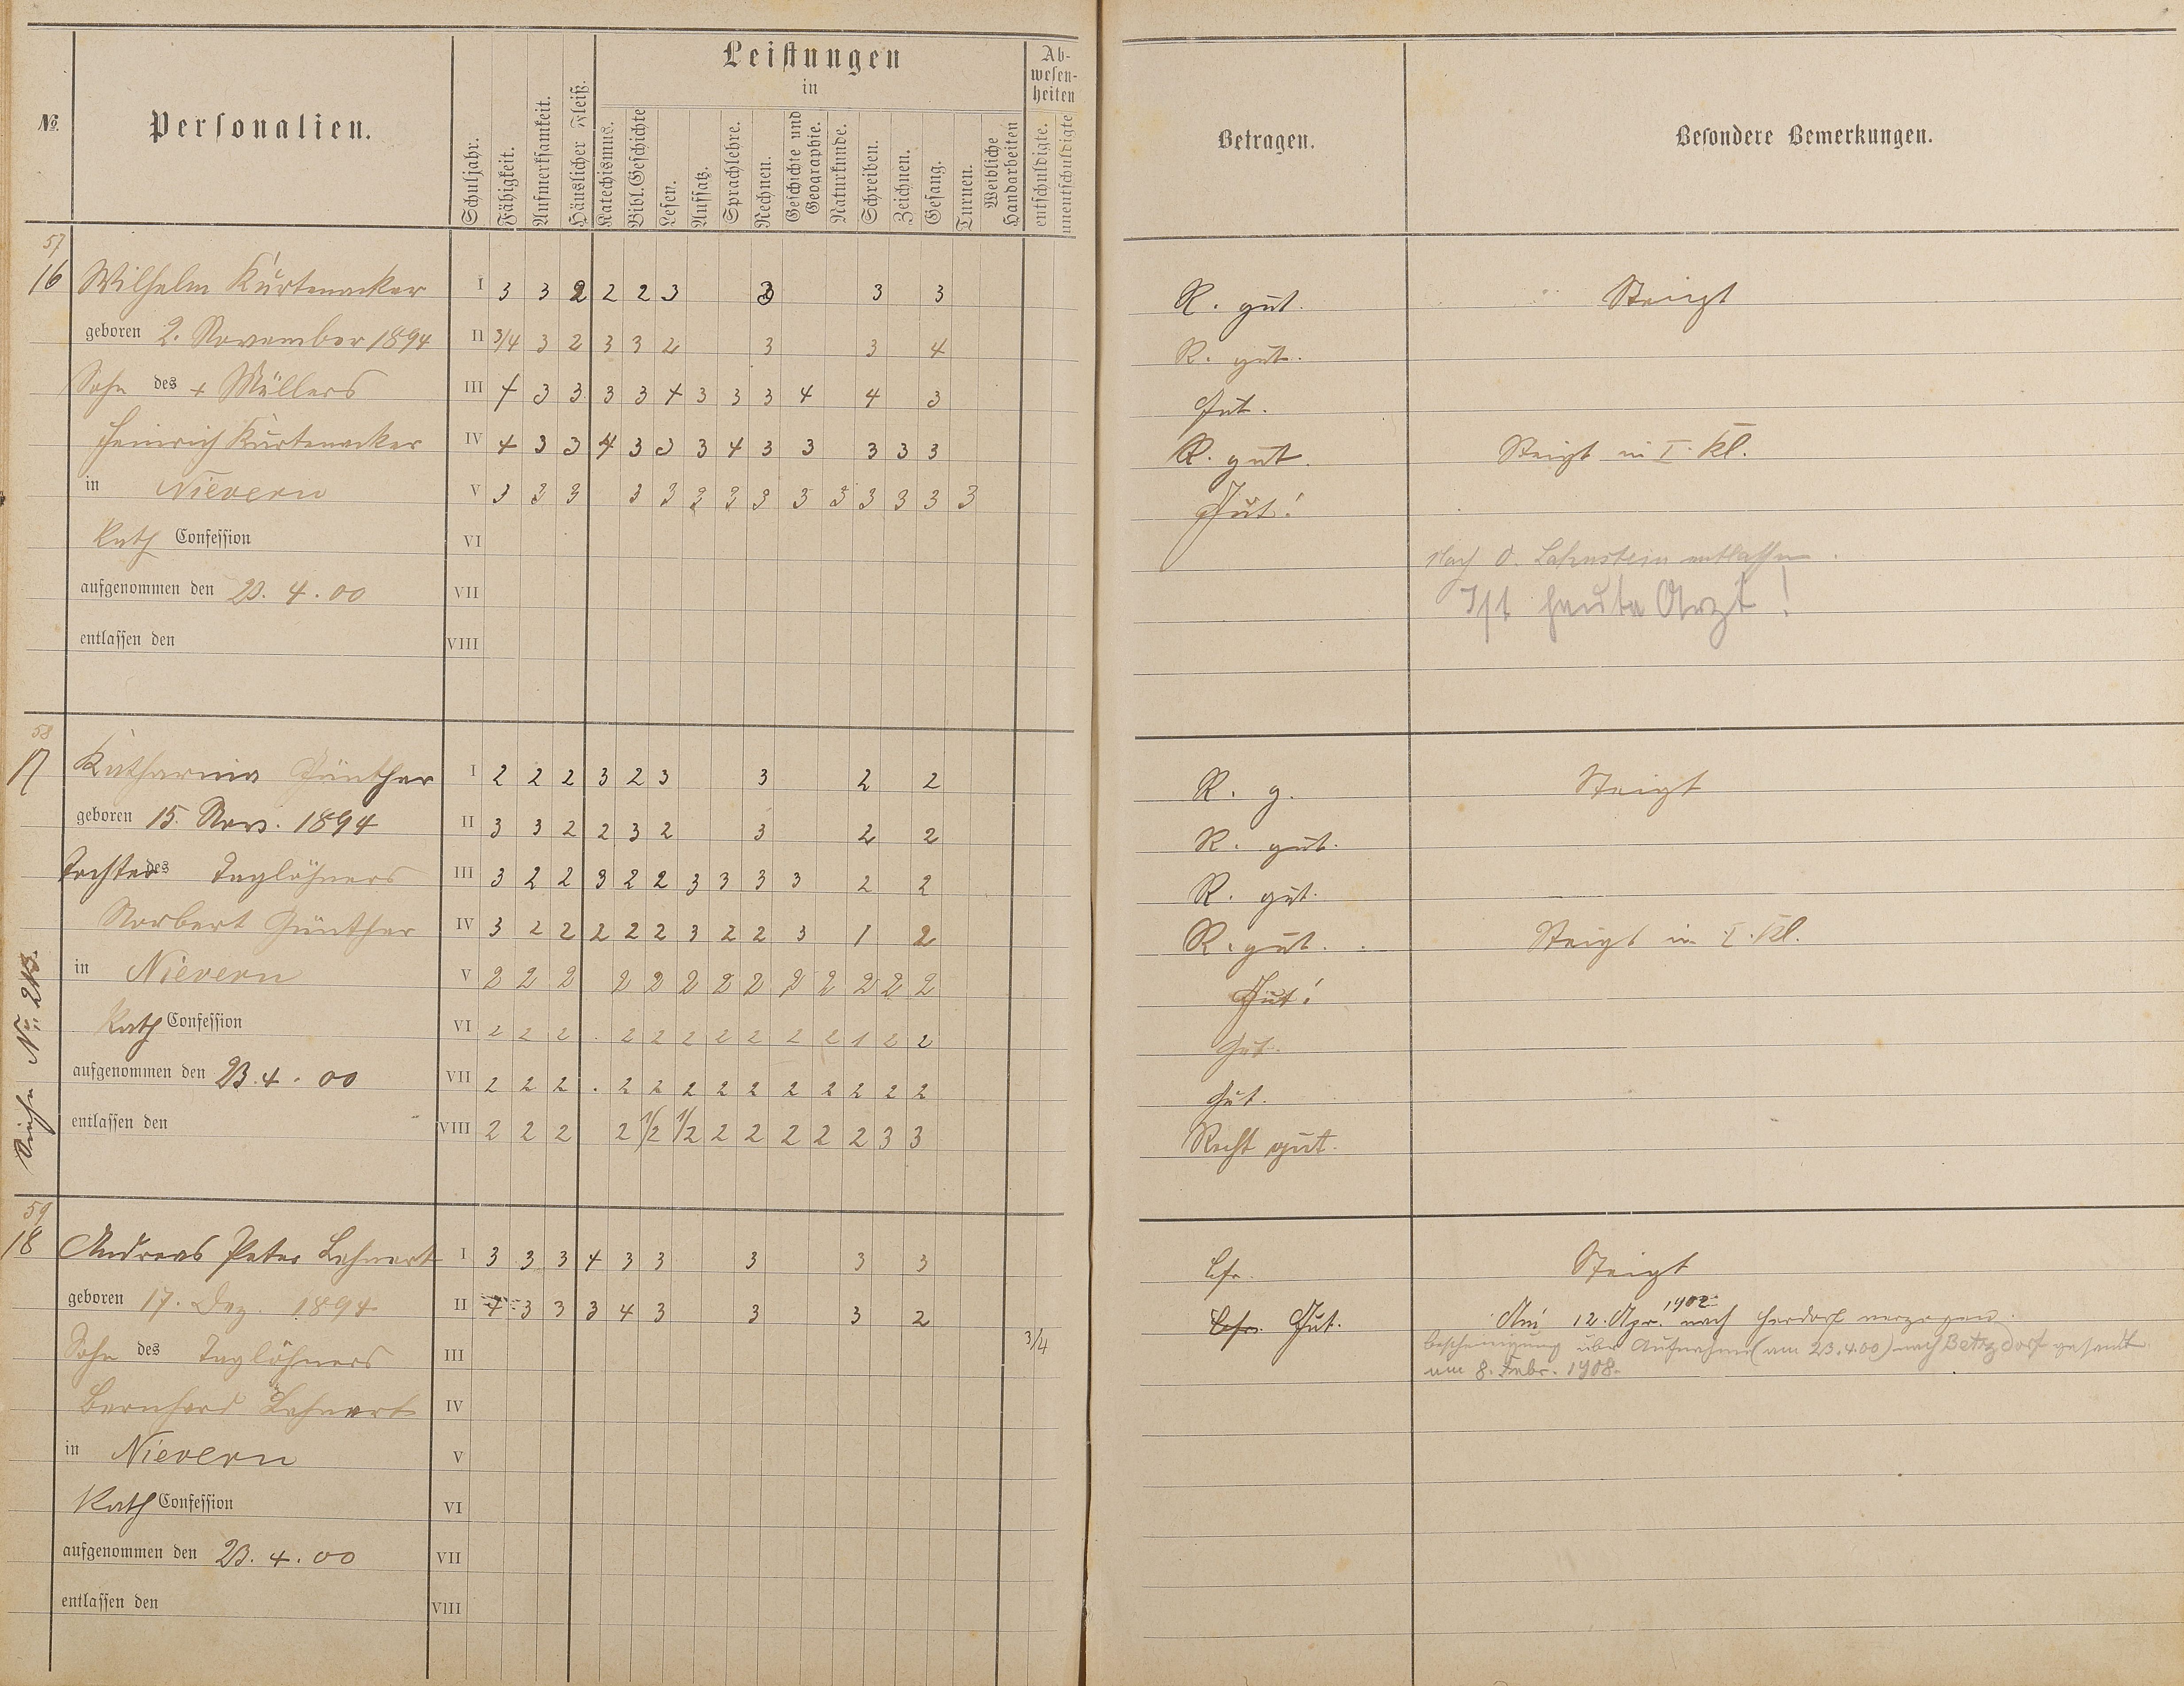 Leistungen
in
Ab-
wesen-
heiten
№
Personalien.
Schuljahr.
Fähigkeit.
Aufmerksamkeit.
Häuslicher Fleiß.
Katechismus.
Bibl. Geschichte
Lesen.
Aufsatz.
Sprachlehre.
Rechnen.
Geschichte und
Geographie.
Naturkunde.
Schreiben.
Zeichnen.
Gesang.
Turnen.
Weibliche
Handarbeiten
entschuldigte.
unentschuldigte
Betragen.
Besondere Bemerkungen.
57
16 Wilhelm Kurtenacker I 3 3 2 2 2 3 3 3 3 R. gut. Steigt
geboren 2. November 1894 II 3/4 3 2 3 3 2 3 3 4 R. gut.
Sohn des + Müllers III 4 3 3 3 3 4 3 3 3 4 4 3 Gut.
Heinrich Kurtenacker IV 4 3 3 4 3 3 3 4 3 3 3 3 3 R. gut. Steigt in I. Kl.
in Nievern V 3 3 3 3 3 2 3 3 3 3 3 3 3 3 Gut!
Kath Confession VI
Nach O. Lahnstein entlassen.
aufgenommen den 23. 4. 00 VII Ist heute Arzt!
entlassen den VIII
58
17 Katharina Günther I 2 2 2 3 2 3 3 2 2 R. g. Steigt
geboren 15. Nov. 1894 II 3 3 2 2 3 2 3 2 2 R. gut.
Tochter des Taglöhners III 3 2 2 3 2 2 3 3 3 3 2 2 R. gut.
Norbert Günther IV 3 2 2 2 2 2 3 2 2 3 1 2 R. gut. Steigt in I. Kl.
in Nievern V 2 2 2 2 2 2 2 2 2 2 2 2 2 Gut!
Kath Confession VI 2 2 2 . 2 2 2 2 2 2 2 1 2 2 Gut.
aufgenommen den 23. 4. 00 VII 2 2 2 . 2 2 2 2 2 2 2 2 2 2 Gut.
entlassen den VIII 2 2 2 2 1/2 1/2 2 2 2 2 2 3 3 Recht gut.
Siehe No. 213.
59
18 Andreas Peter Lehnert I 3 3 3 4 3 3 3 3 3 Bfr. Steigt
geboren 17. Dez. 1894 II 4 3 3 3 4 3 3 3 2 Bfr. Gut. Am 12. Apr. 1902 nach Herdorf verzogen.
3/4
Bescheinigung über Aufnahme (am 23.4.00) nach Betzdorf gesandt
am 8. Febr. 1908.
Sohn des Taglöhners III
Bernhard Lehnert IV
in Nievern V
Kath Confession VI
aufgenommen den 23. 4. 00 VII
entlassen den VIII